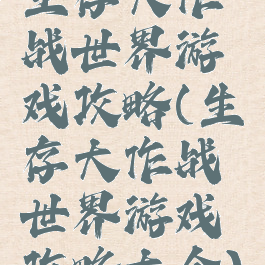 生存大作
战世界游
戏攻略(生
存大作战
世界游戏
攻略大全)